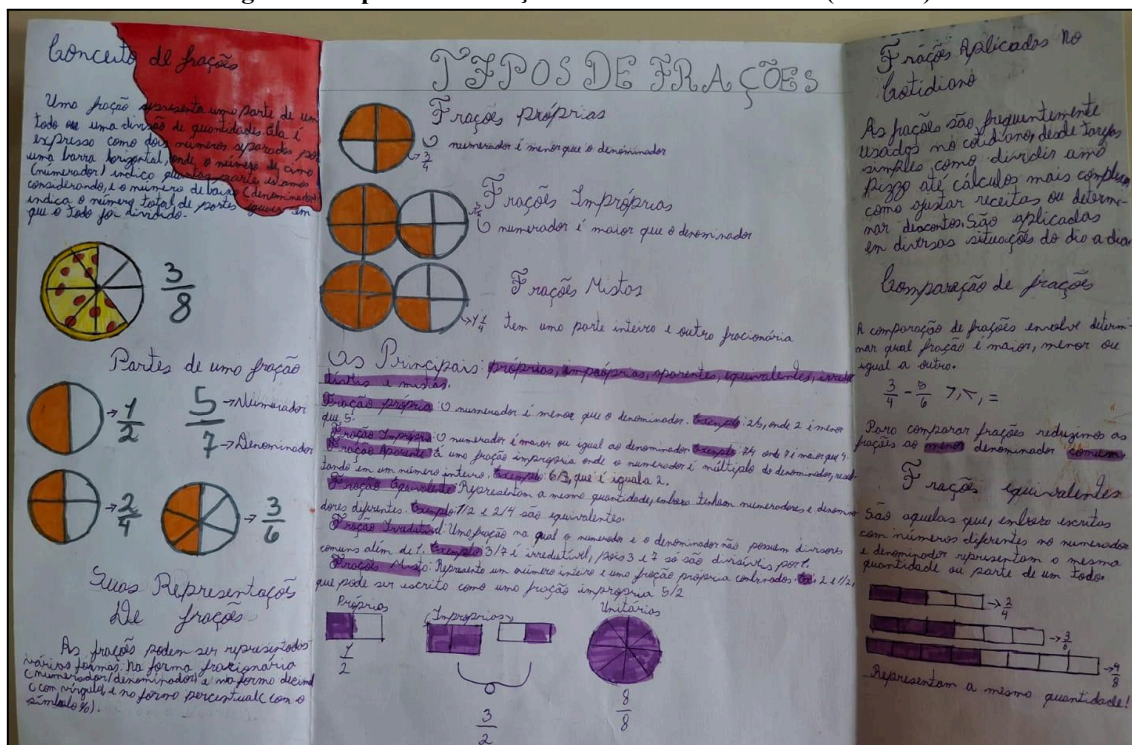 Conceito de frações
Uma fração representa uma parte de um
todo ou uma divisão de quantidades. Ela é
expresso como dois números separados por
uma barra horizontal, onde o número de cima
(numerador) indica quantas partes estamos
considerando, e o número de baixo (denominador)
indica o número total de partes iguais em
que o todo foi dividido.
3/8
Partes de uma fração
1/2
5 → Numerador
7 → Denominador
2/4
3/6
Suas Representações
De frações
As frações podem ser representados
várias formas: Na forma fracionária
(numerador/denominador) e na forma decimal
(com vírgula) e na forma percentual (com o
símbolo %).
TIPOS DE FRAÇÕES
Frações próprias
O
numerador é menor que o denominador
3/4
Frações Impróprias
O numerador é maior que o denominador
Frações Mistas
1 1/4
tem uma parte inteira e outra fracionária
Os Principais: próprias, impróprias, aparentes, equivalentes, irredu
tíveis e mistas.
Fração própria: O numerador é menor que o denominador. Exemplo: 2/5, onde 2 é menor
que 5.
Fração Imprópria: O numerador é maior ou igual ao denominador. Exemplo: 7/4 onde 7 é maior que 4.
Fração Aparente: É uma fração imprópria onde o numerador é múltiplo do denominador, resul-
tando em um número inteiro. Exemplo: 6/3, que é igual a 2.
Fração Equivalente: Representam a mesma quantidade, embora tenham numeradores e denomina
dores diferentes. Exemplo: 1/2 e 2/4 são equivalentes.
Fração Irredutível: Uma fração na qual o numerador e o denominador não possuem divisores
comuns além de 1. Exemplo: 3/7 é irredutível, pois 3 e 7 só são divisíveis por 1.
Frações Mista: Representa um número inteiro e uma fração própria combinados. Ex: 2 e 1/2,
que pode ser escrito como uma fração imprópria 5/2
Próprias
1/2
Impróprias
3/2
Unitárias
8/8
Frações Aplicadas No
Cotidiano
As frações são frequentemente
usadas no cotidiano, desde tarefas
simples como dividir uma
pizza até cálculos mais complexos
como ajustar receitas ou determi-
nar descontos. São aplicadas
em diversas situações do dia a dia.
Comparação de frações
A comparação de frações envolve determi-
nar qual fração é maior, menor ou
igual a outra.
3/4 - 5/6 >, <, =
Para comparar frações reduzimos as
frações ao menor denominador comum
Frações equivalentes
São aquelas que, embora escritas
com números diferentes no numerador
e denominador representam a mesma
quantidade ou parte de um todo.
2/4
3/6
4/8
Representam a mesma quantidade!